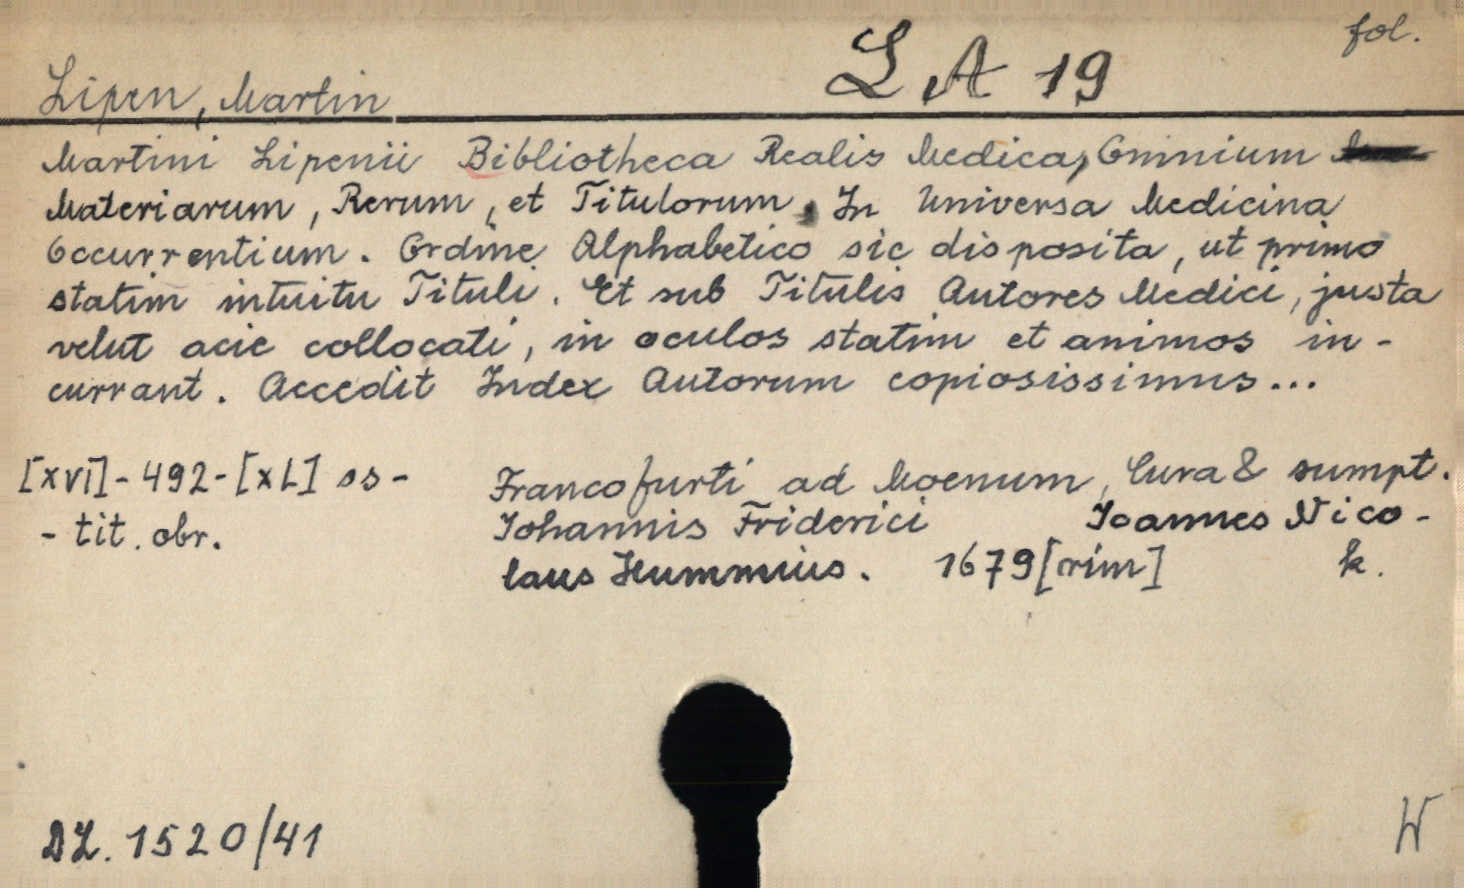 fol.
L A 19
Lipen, Martin
Martini Lipenii Bibliotheca Realis Medica, Omnium
Materiarum, Rerum, et Titulorum, In Universa Medicina
Occurrentium. Ordine Alphabetico sic disposita, ut primo
statim intuitu Tituli. Et sub Titulis Autores Medici, justa
velut acie collocati, in oculos statim et animos in-
currant. Accedit Index Autorum copiosissimus...
[XVI]-492-[XL] ss - Francofurti ad Moenum, Cura & sumpt.
- tit. obr. Iohannis Friderici Ioannes Nico-
laus Hummius. 1679 [rim] k.
DZ. 1520/41
W